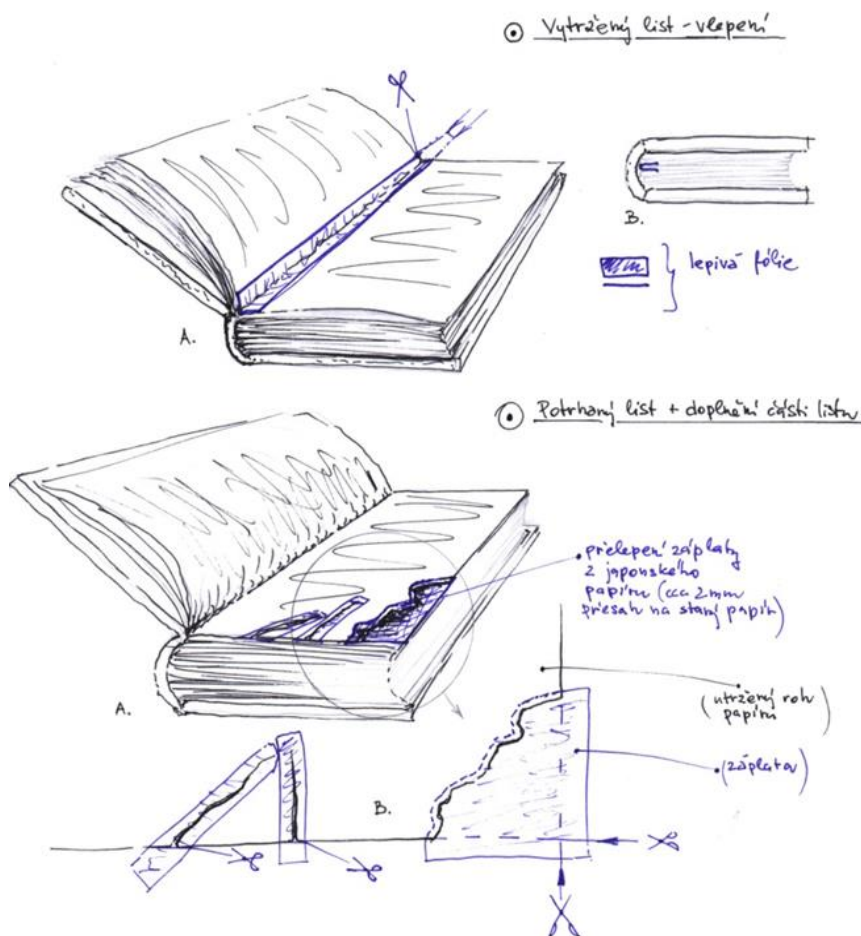 Vytržený list - vlepení
A.
B.
lepivá fólie
Potrhaný list + doplnění části listu
přelepení záplaty
z japonského
papíru (cca 2mm
přesah na starý papír)
A.
(utržený roh
papíru)
(záplata)
B.